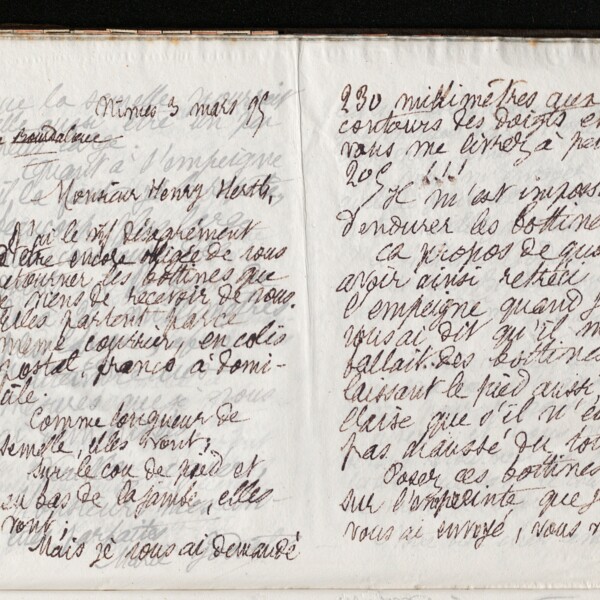 Nimes 3 mars 95
Bourdaloue
Monsieur Henry Herth,
J'ai le vif désagrément
d'être encore obligée de vous
retourner les bottines que
je viens de recevoir de vous.
Elles partent par ce
même courrier en colis
postal, franco à domi-
cile.
Comme longueur de
semelle, elles vont;
sur le cou de pied et
au bas de la jambe, elles
vont;
Mais je vous ai demandé
230 millimètres aux
contours des doigts et
vous me livrez à
205 !!!
Il m'est impos
d'endurer les bottines
Ca propos de quoi
avoir ainsi rétréci
l'empeigne quand j
vous ai dit qu'il m
fallait des bottines
laissant le pied aussi
l'aise que s'il n'é
pas chaussé du tou
Posez ces bottines
sur l'empreinte que j
vous ai envoyé, vous v